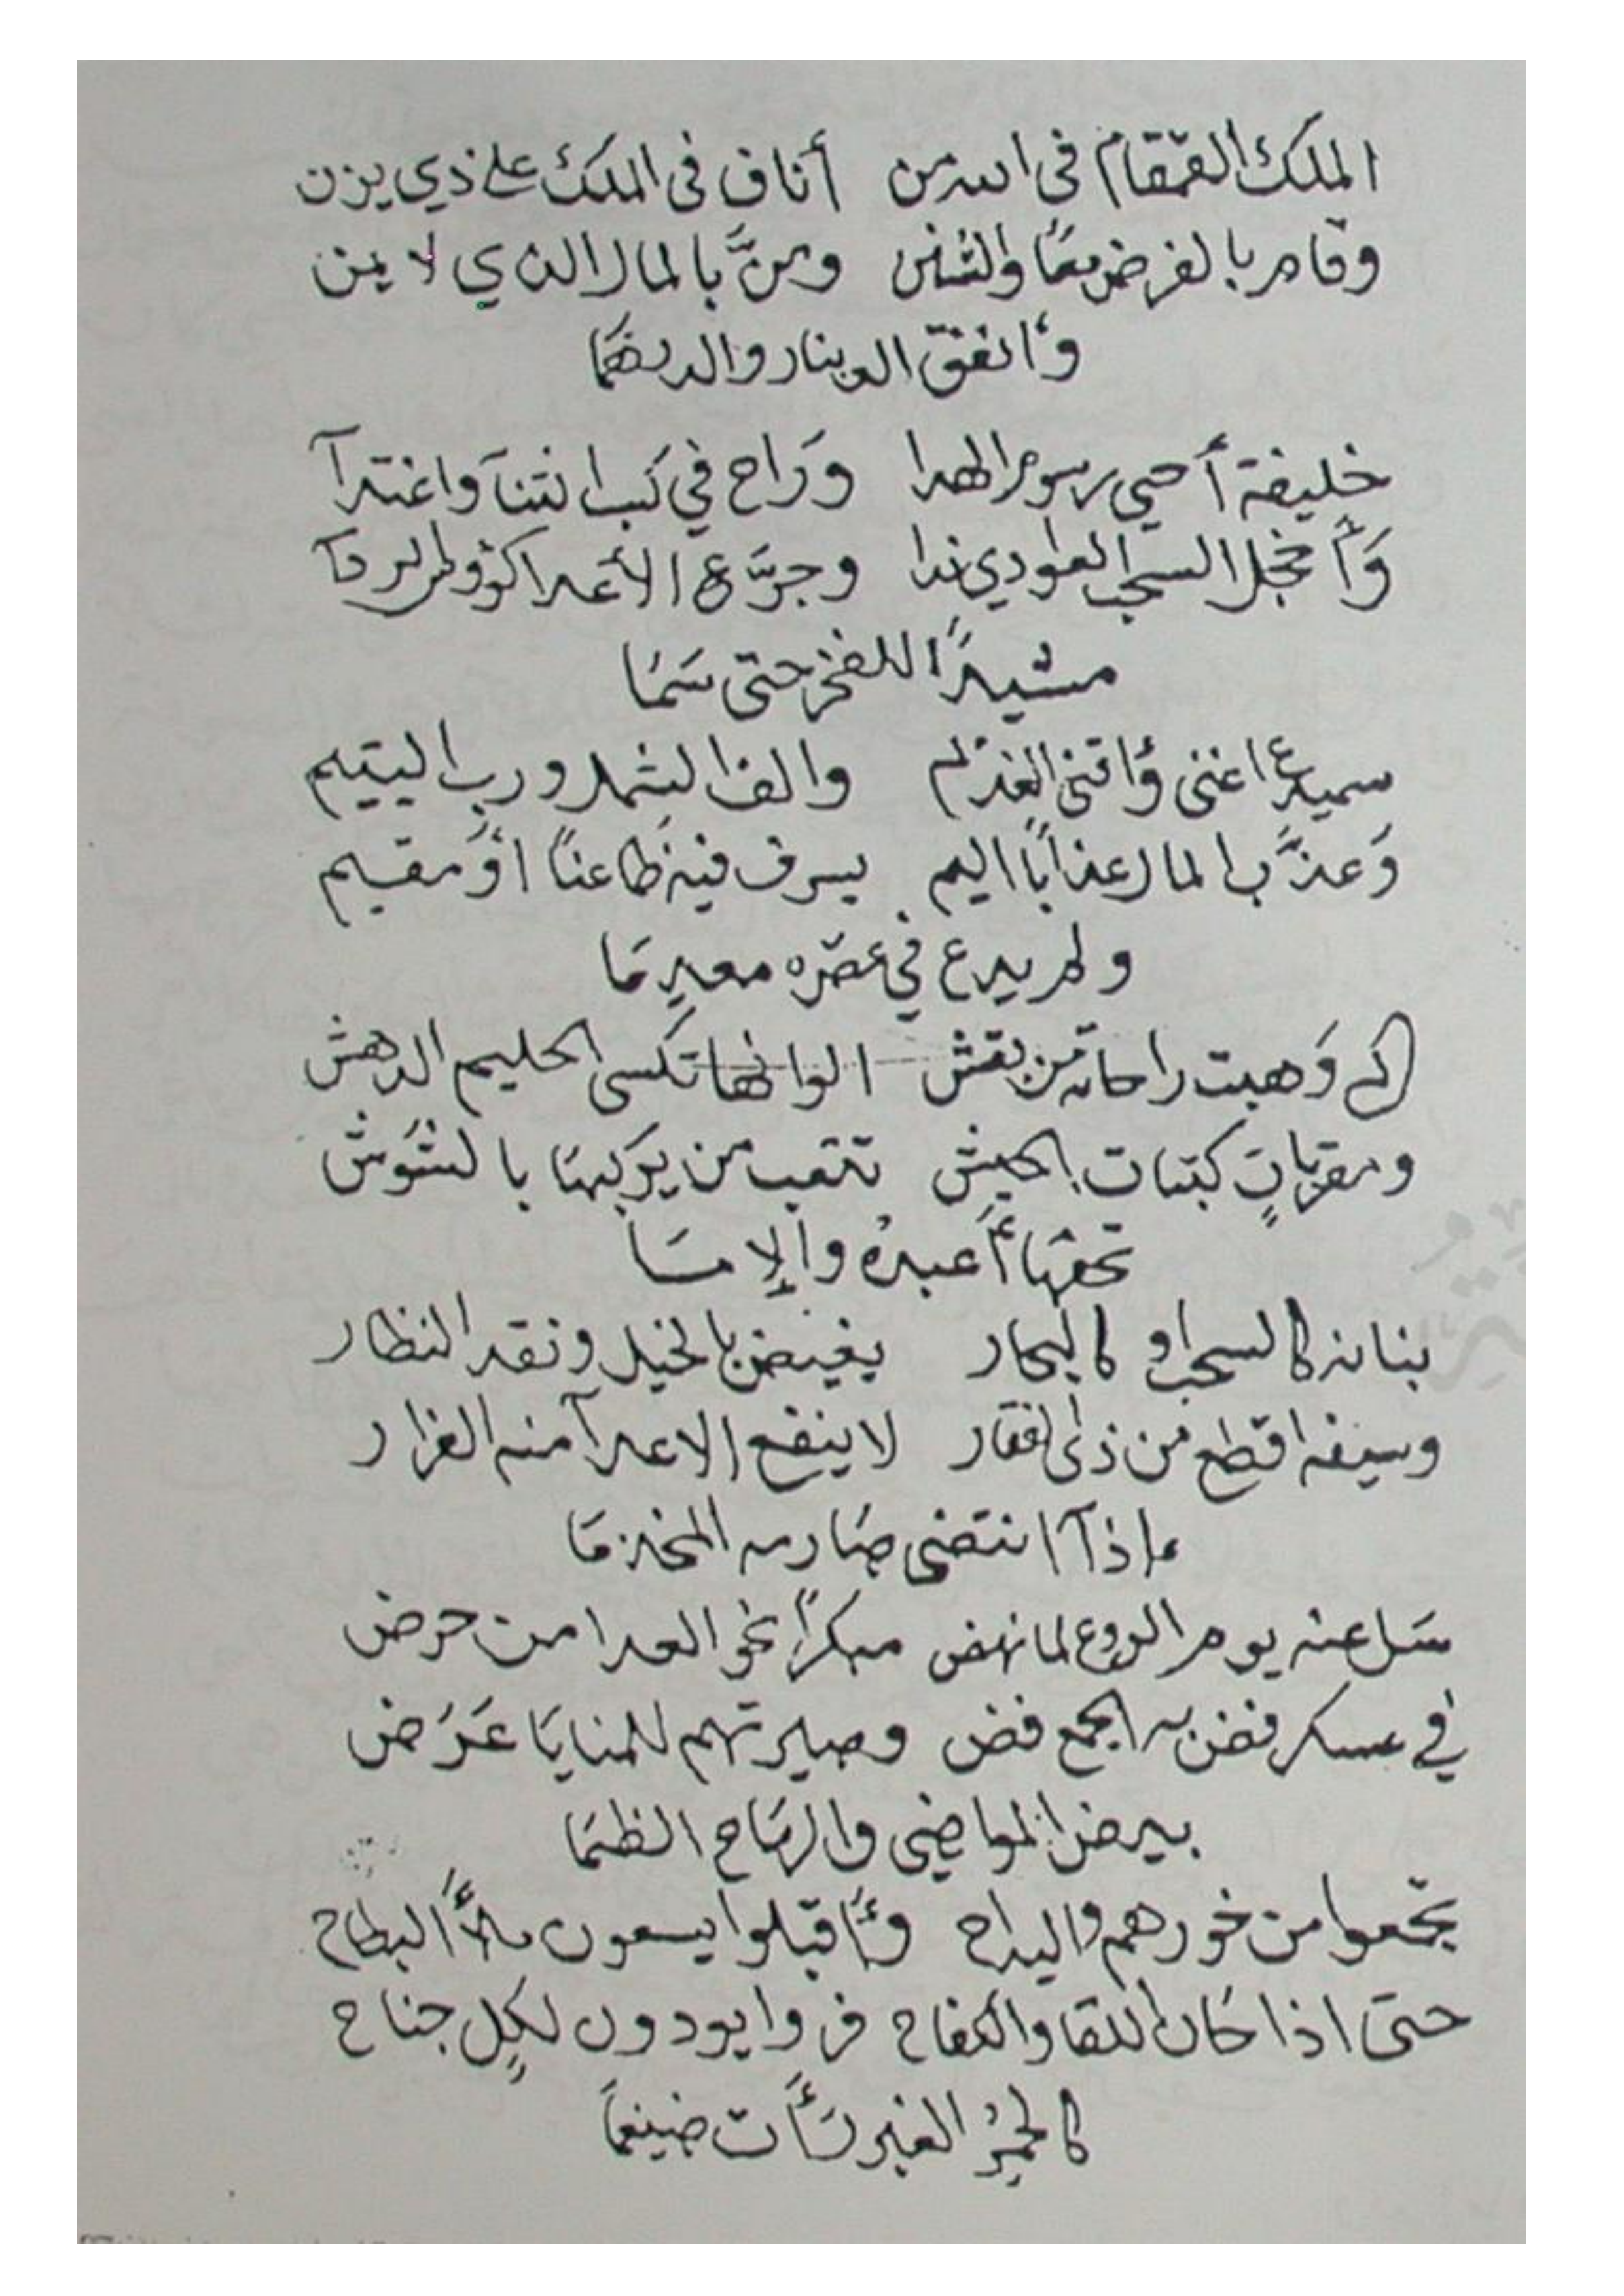 الملك القمقام في اليمن أناف في الملك على ذي يزن
وقام بالفرض معًا والسنن ومنَّ بالمال الذي لا يمن
وأنفق الدينار والدرهمَا
خليفة أحيى رسوم الهدا وَراح في كسب الثنآ واغتدآ
وَأخجل السحب الغوادي ندا وجرَّع الأعدا كؤوس الردآ
مشيدًا للفخر حتى سَمَا
سميدع اغنى وأقنى العديم والف الشمل ورب اليتيم
وَعذَّب المال عذابًا اليم يسرف فيه ظاعنًا أو مقيم
ولم يدع في عصره معدمَا
كم وَهبت راحاته من نقش الوانها تكسى الحليم الدهش
ومقربات كبنات الحبش تتعب من يركبها بالشوش
تحفها أعبدهُ والإمَا
بنانه كالسحب او كالبحار يفيض بالخيل ونقد النظار
وسيفه اقطع من ذي الفقار لا ينفع الاعدآ منه الفرار
إذآ انتضى صارمه المخذمَا
سَل عنه يوم الروع لما نهض مبكرًا نحو العدا من حرض
في عسكر فض به الجمع فض وصيرتهم للمنايَا عَرَض
بيض المواضي والرمَاح الظمَا
تجمعوا من غورهم والبداح وأَقبلوا يسعون ملأَ البطاح
حتى اذا كان اللقا والكفاح فروا يودون لكلٍ جناح
كالحمر الغبر رَأَت ضيغمَا